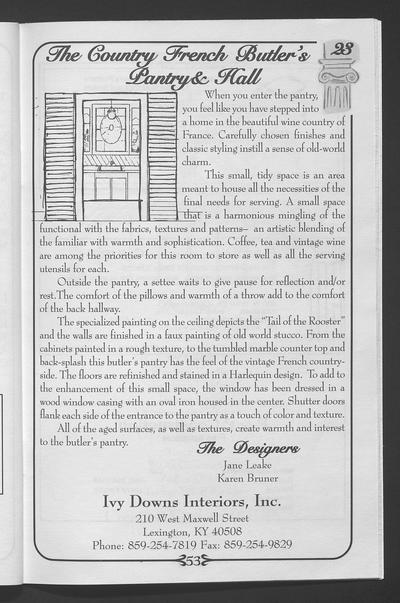 The Country French Butler's
Pantry & Hall
23
When you enter the pantry,
you feel like you have stepped into
a home in the beautiful wine country of
France. Carefully chosen finishes and
classic styling instill a sense of old-world
charm.
This small, tidy space is an area
meant to house all the necessities of the
final needs for serving. A small space
that is a harmonious mingling of the
functional with the fabrics, textures and patterns– an artistic blending of
the familiar with warmth and sophistication. Coffee, tea and vintage wine
are among the priorities for this room to store as well as all the serving
utensils for each.
Outside the pantry, a settee waits to give pause for reflection and/or
rest.The comfort of the pillows and warmth of a throw add to the comfort
of the back hallway.
The specialized painting on the ceiling depicts the "Tail of the Rooster"
and the walls are finished in a faux painting of old world stucco. From the
cabinets painted in a rough texture, to the tumbled marble counter top and
back-splash this butler's pantry has the feel of the vintage French country-
side. The floors are refinished and stained in a Harlequin design. To add to
the enhancement of this small space, the window has been dressed in a
wood window casing with an oval iron housed in the center. Shutter doors
flank each side of the entrance to the pantry as a touch of color and texture.
All of the aged surfaces, as well as textures, create warmth and interest
to the butler's pantry.
The Designers
Jane Leake
Karen Bruner
Ivy Downs Interiors, Inc.
210 West Maxwell Street
Lexington, KY 40508
Phone: 859-254-7819 Fax: 859-254-9829
53